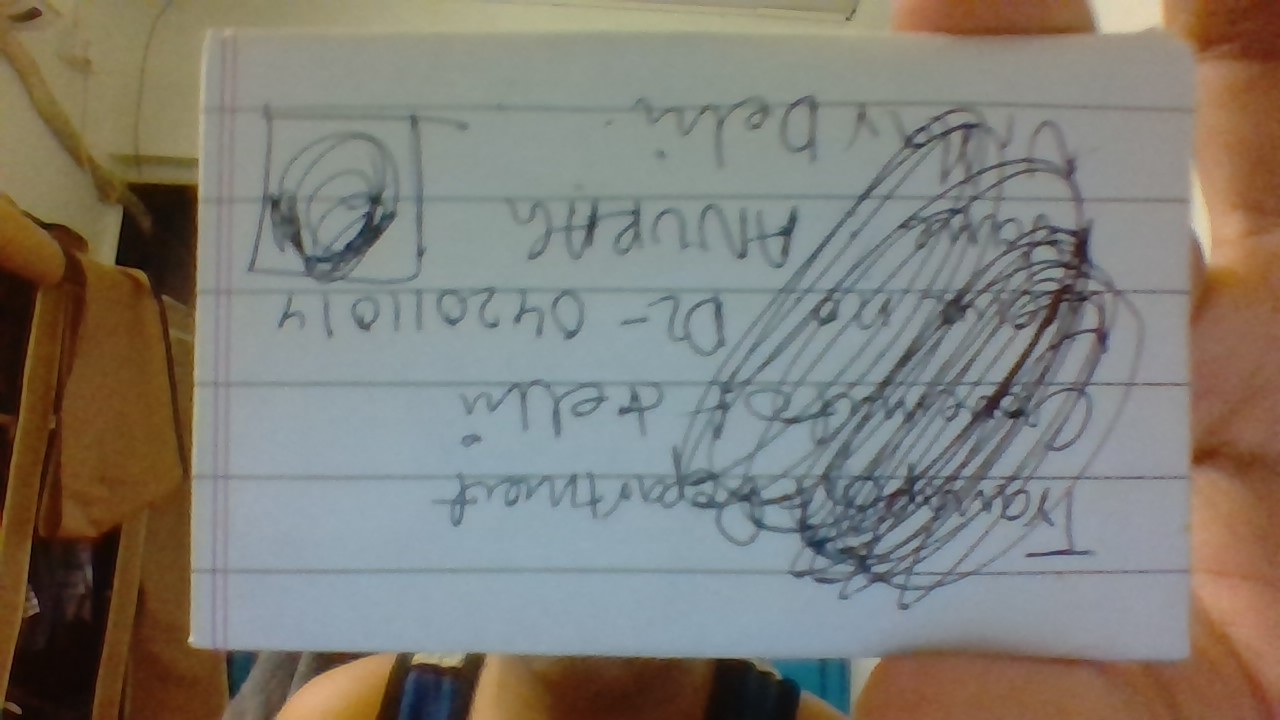 Transport Department
Government of delhi
Licence no DL- 042011014
Name ANURAG
Only Delhi